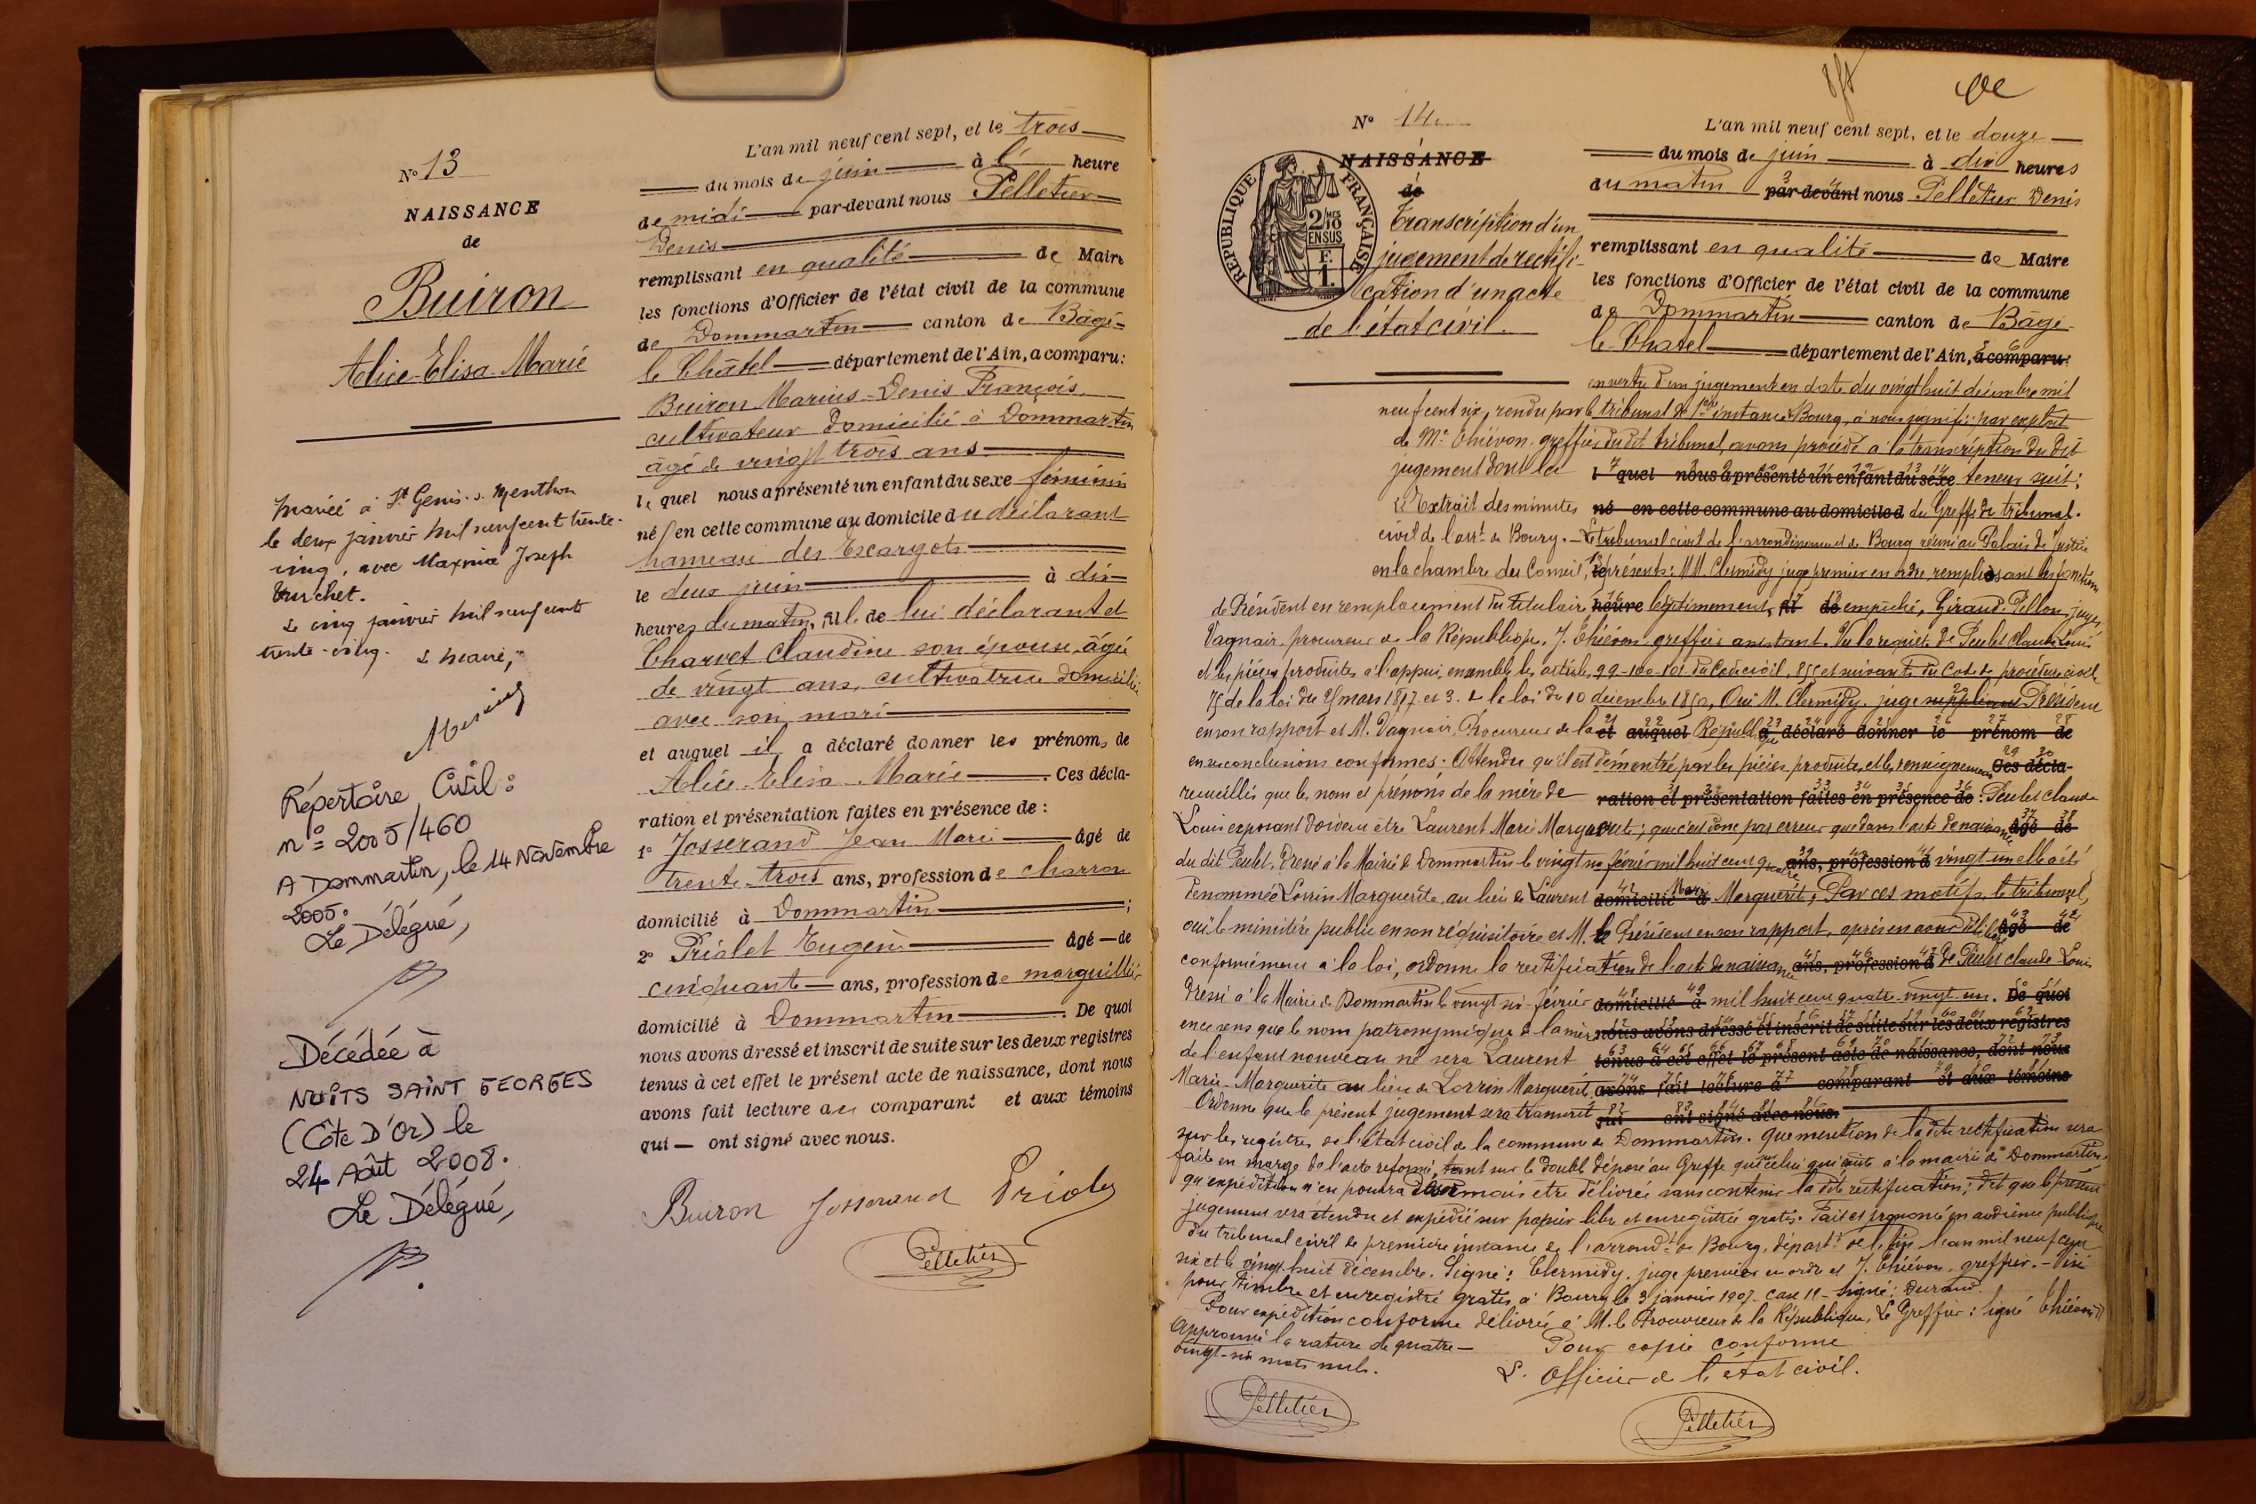 No 13
NAISSANCE
de
Buiron
Alice-Elisa-Marie
Mariée à St Genis-s-Menthon
le deux janvier mil neuf cent trente-
cinq, avec Maxime Joseph
Le cinq janvier mil neuf cent
trente-cinq. Le Maire,
Répertoire Civil :
n° = 2005/460
A Dommartin, le 14 Novembre
2005.
Le Délégué,
Décédée à
NUITS SAINT GEORGES
(Côte D'Or) le
24 Août 2008.
Le Délégué,
L'an mil neuf cent sept, et le trois
du mois de juin à l' heure
de midi par-devant nous Pelletier
Denis
remplissant en qualité de Maire
les fonctions d'Officier de l'état civil de la commune
de Dommartin canton de Bâgé-
le Châtel département de l'Ain, a comparu :
Buiron Marius-Denis François
cultivateur domicilié à Dommartin
âgé de vingt trois ans
lequel nous a présenté un enfant du sexe féminin
né en cette commune au domicile du déclarant
hameau des Escargots
le deux juin à dix
heures du matin, fille de lui déclarant et
Charvet Claudine son épouse, âgée
de vingt ans, cultivatrice domiciliée
avec son mari
et auquel il a déclaré donner les prénoms de
Alice Elisa Marie. Ces décla-
ration et présentation faites en présence de :
1° Josserand Jean Marie âgé de
trente-trois ans, profession de charron
domicilié à Dommartin ;
2° Priolet Eugène âgé de
cinquante ans, profession de marguillier
domicilié à Dommartin. De quoi
nous avons dressé et inscrit de suite sur les deux registres
tenus à cet effet le présent acte de naissance, dont nous
avons fait lecture au comparant et aux témoins
qui ont signé avec nous.
Buiron Josserand Priolet
Pelletier
No 14
NAISSANCE
de
Transcription d'un
jugement de rectifi-
cation d'un acte
de l'état civil.
RÉPUBLIQUE FRANÇAISE
2/10
EN SUS
F.
1.
L'an mil neuf cent sept, et le douze
du mois de juin à dix heures
du matin par-devant nous Pelletier Denis
remplissant en qualité de Maire
les fonctions d'Officier de l'état civil de la commune
de Dommartin canton de Bâgé-
le Chatel département de l'Ain, a comparu :
en vertu d'un jugement en date du vingt huit décembre mil
neuf cent six, rendu par le tribunal de 1ère instance Bourg, à nous signifié par exploit
de Me Thiévon, greffier du dit tribunal, avons procédé à la transcription du dit
jugement dont la l quel nous a présenté un enfant du sexe teneur suit :
Extrait des minutes né en cette commune au domicile d du Greffe du tribunal
civil de l'arrt de Bourg. - Le tribunal civil de l'arrondissement de Bourg réuni au Palais de Justice
en la chambre du Conseil, le présents : MM. Clermidy juge premier en ordre, remplissant les fonctions
de Président en remplacement du titulaire heure légitimement, fil de empêché, Giraud, Pellon, juges,
Vagnair, procureur de la République, J. Thiévon greffier assistant. Vu la requête de Peulet Claude Louis
et les pièces produites à l'appui, ensemble les articles 99-100-101 du Code civil, 855 et suivants du Code de procédure civile
75 de la loi du 25 mars 1817 et 3. de la loi du 10 décembre 1850, Ouï M. Clermidy, juge suppléant Président
en son rapport et M. Vagnair, Procureur de la et auquel Républ a déclaré donner le prénom de
en ses conclusions conformes : Attendu qu'il est démontré par les pièces produites, et les renseignements Ces décla-
recueillis que le nom et prénoms de la mère de ration et présentation faites en présence de : Peulet Claude
Louis exposant doivent être Laurent Marie Marguerite ; que c'est donc par erreur que dans l'acte de naissance âgé de
du dit Peulet, dressé à la Mairie de Dommartin le vingt six février mil huit cent quatre ans, profession d vingt un elle a été
dénommée Lorrin Marguerite au lieu de Laurent domicilié à Marie Marguerite, Par ces motifs, le tribunal,
ouï le ministère public en son réquisitoire et M. le Président en son rapport, après en avoir délibéré âgé de
conformément à la loi, ordonne la rectification de l'acte de naissance ans, profession d de Peulet Claude Louis
dressé à la Mairie de Dommartin le vingt six février domicilié à mil huit cent quatre-vingt un. De quoi
en ce sens que le nom patronymique de la mère nous avons dressé et inscrit de suite sur les deux registres
de l'enfant nouveau né sera Laurent tenus à cet effet le présent acte de naissance, dont nous
Marie-Marguerite au lieu de Lorrin Marguerite avons fait lecture a comparant et aux témoins
Ordonne que le présent jugement sera transcrit qui ont signé avec nous.
sur les registres de l'état civil de la commune de Dommartin. Que mention de la dite rectification sera
faite en marge de l'acte réformé, tant sur le double déposé au Greffe que celui qui existe à la mairie de Dommartin,
qu'expédition n'en pourra désormais être délivrée sans contenir la dite rectification ; dit que le présent
jugement sera étendu et expédié sur papier libre et enregistré gratis. Fait et prononcé en audience publique
du tribunal civil de première instance de l'arrondt de Bourg, départt de l'Ain l'an mil neuf cent
six et le vingt huit décembre. Signé : Clermidy, juge premier en ordre et J. Thiévon, greffier. - Visé
pour timbre et enregistré gratis à Bourg le 3 janvier 1907. Case 11 - Signé : Durand.
Pour expédition conforme délivrée à M. le Procureur de la République, Le Greffier : Signé Thiévon
Approuvé la rature de quatre- Pour copie conforme
vingt-six mots nuls. L'Officier de l'état civil.
Pelletier
Pelletier